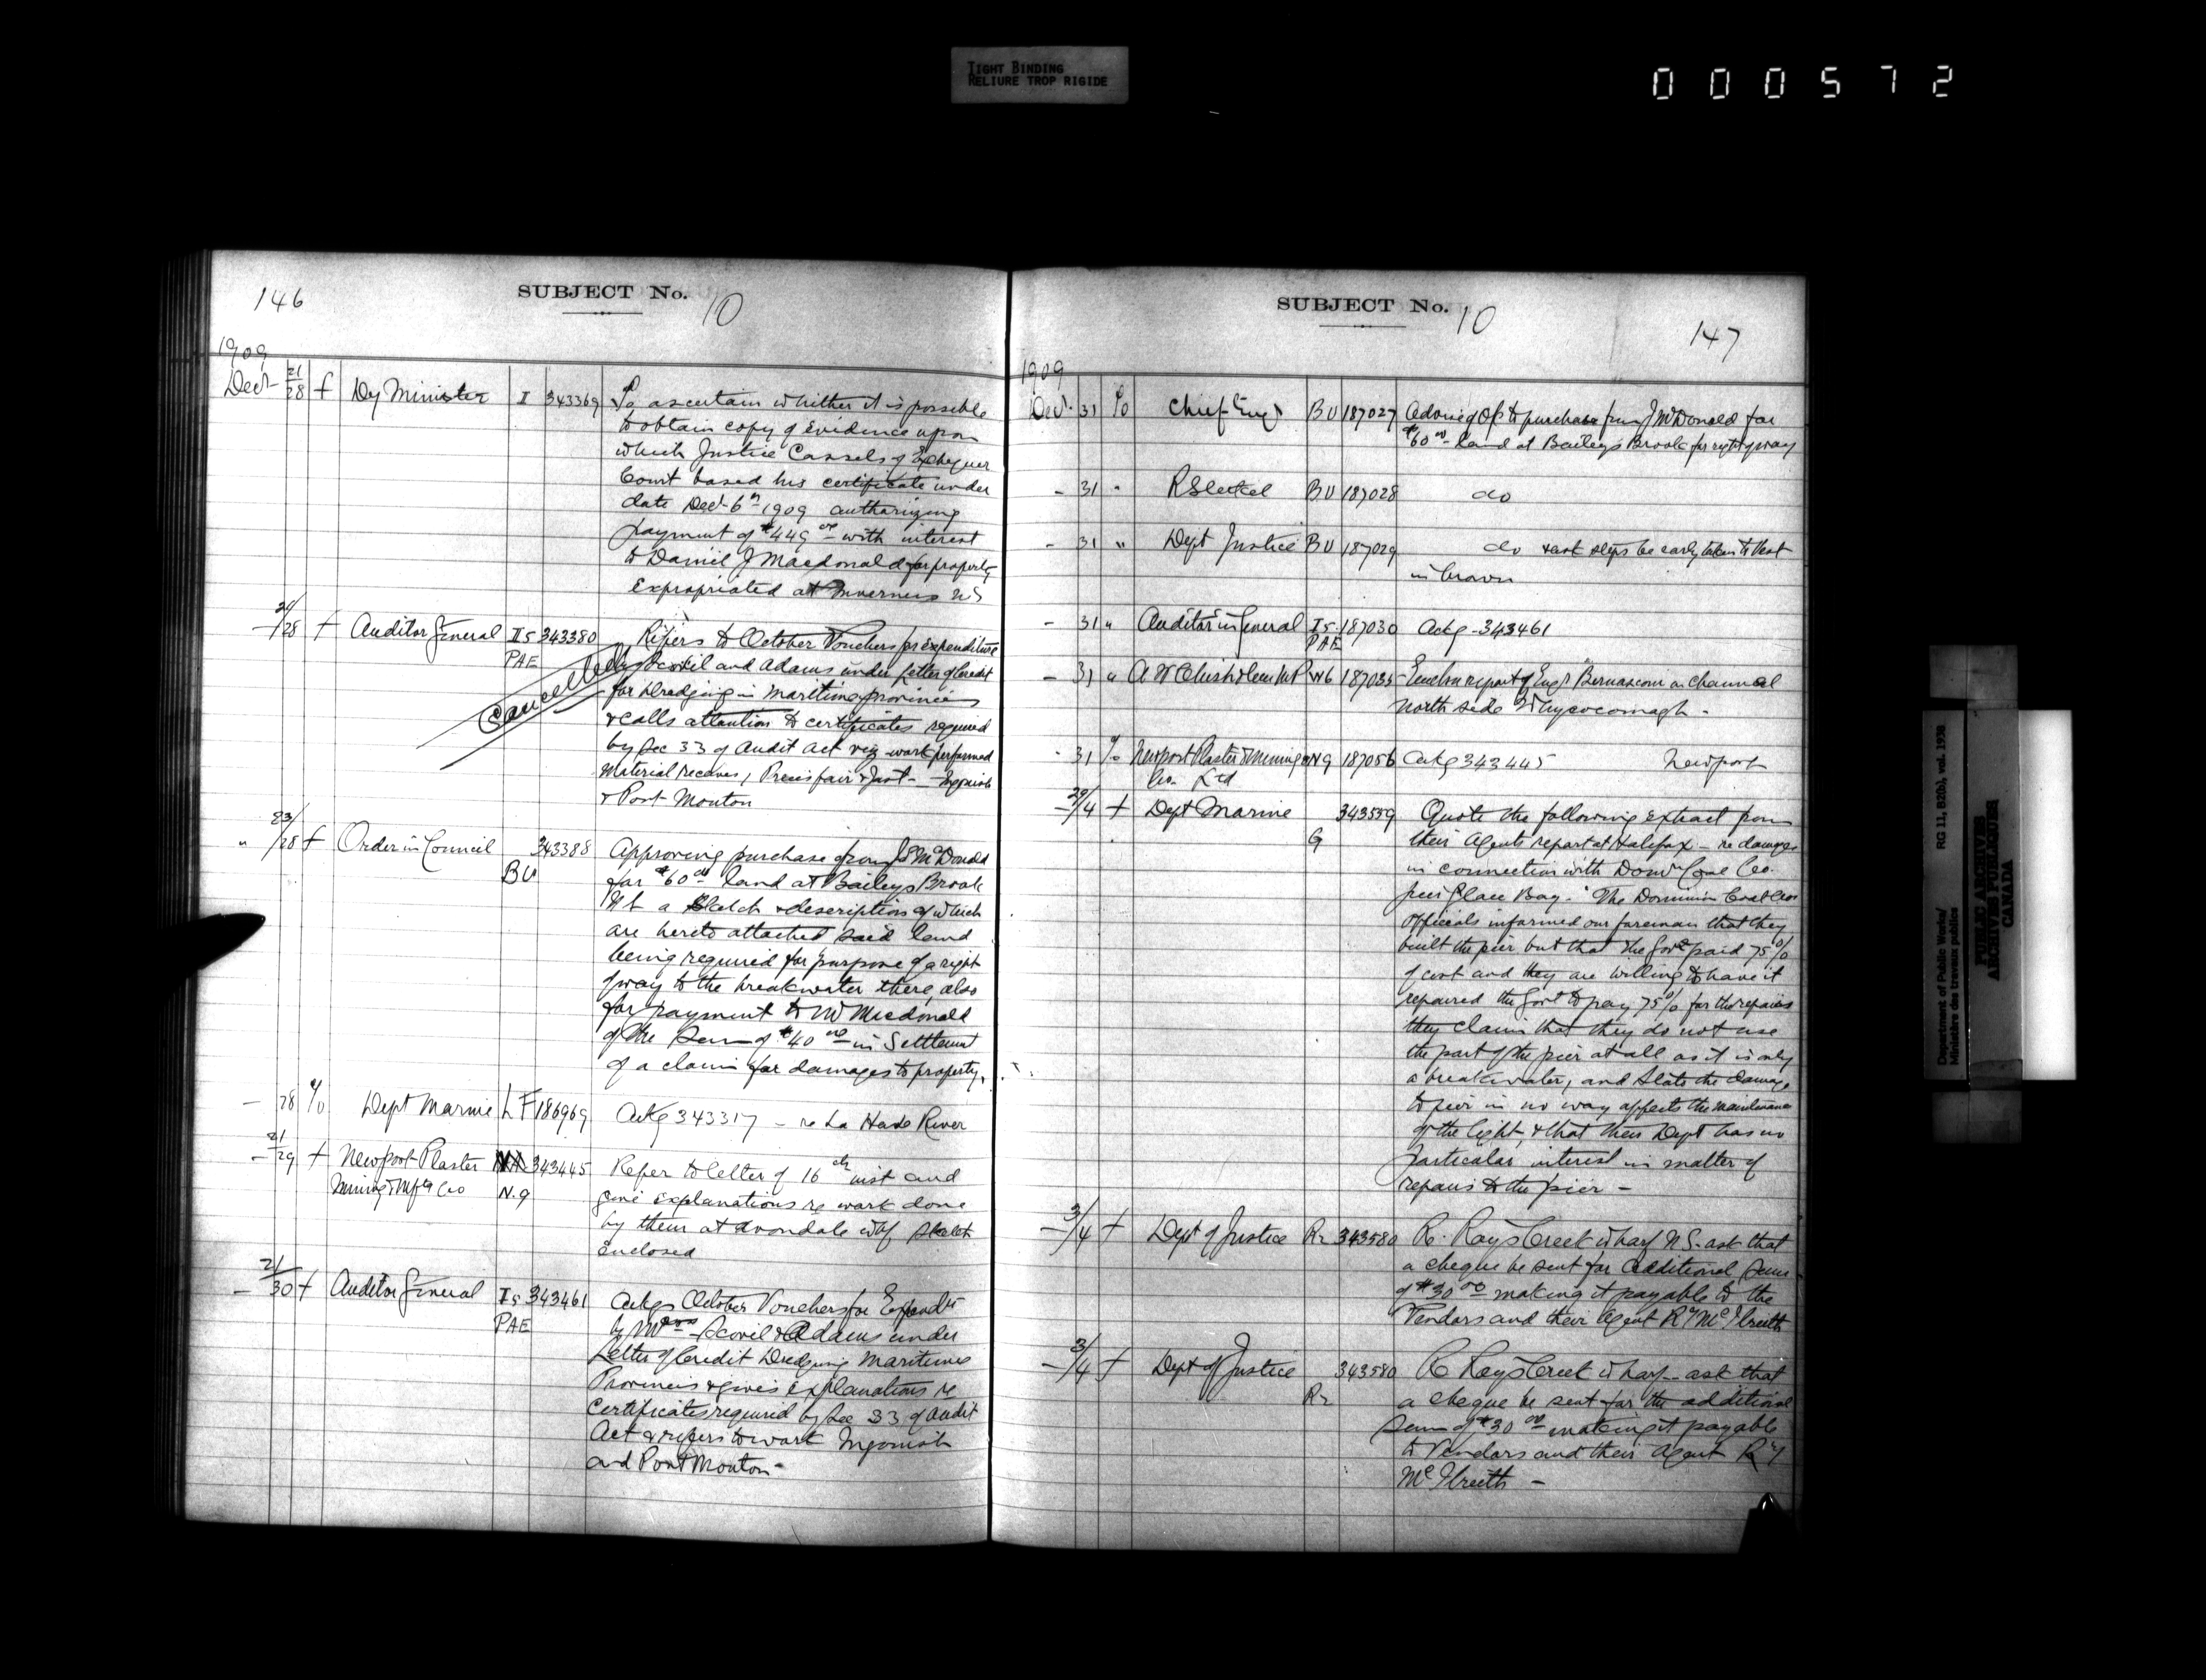 TIGHT BINDING
RELIURE TROP RIGIDE
000572
146
SUBJECT No. 10
1909
Decr 21/28 f Dy Minister I 343369 To ascertain whether it is possible
to obtain copy of Evidence upon
which Justice Cassels of Exchequer
Court based his certificate under
date Decr 6th 1909 authorizing
payment of $449 00 with interest
to Daniel J Macdonald for property
expropriated at Inverness NS
24/28 f Auditor General I5 343380 Refers to October Vouchers for expenditure
PAE by Scovil and Adams under Letter of Credit
Cancelled
for Dredging in Maritime provinces
& calls attention to certificates required
by Sec 33 of Audit Act viz work performed
Material received, Prices fair & Just - Ingonish
& Port Mouton
" 23/28 f Order in Council 343388 Approving purchase from J S McDonald
BU for $60 00 land at Baileys Brook
NS a Sketch & description of which
are hereto attached said land
being required for purpose of a right
of way to the breakwater there, also
for payment to Mr Macdonald
of the Sum of $40 00 in Settlement
of a claim for damages to property.
- 28 T/o Dept Marine LF 186969 Ackg 343317 - re La Have River
- 21/29 f Newport Plaster 343445 Refer to letter of 16th inst and
Mining & Mfg Co N.9 give explanations re work done
by them at Avondale whf sketch
enclosed
- 21/30 f Auditor General I5 343461 Ackgs October Vouchers for Expendre
PAE by Messrs Scovil & Adams under
Letter of Credit Dredging Maritime
Provinces & gives explanations re
Certificates required by Sec 33 of Audit
Act & refers to work Ingonish
and Port Mouton -
SUBJECT No. 10
147
1909
Decr 31 To Chief Engr BU 187027 Advising O/C to purchase from J McDonald for
$60 00 land at Baileys Brook for right of way
- 31 " R Steckel BU 187028 do
- 31 " Dept Justice BU 187029 do & ask steps be early taken to Vest
in Crown
- 31 " Auditor General I5 187030 Ackg - 343461
PAE
- 31 " A W Chisholm MP W6 187035 Enclos report of Engr Bernasconi on channel
north side Whycocomagh -
- 31 T/o Newport Plaster & Mining N9 187056 Ackg 343445 Newport
Co. Ltd
- 29/4 f Dept Marine 343559 Quote the following extract from
G their Agents report at Halifax - re damages
in connection with Domn Coal Co.
pier Glace Bay. "The Dominion Coal Cos
Officials informed our foreman that they
built the pier but that the Govt paid 75%
of cost and they are willing to have it
repaired the Govt to pay 75% for the repairs
they claim that they do not use
the part of the pier at all as it is only
a breakwater, and State the damage
to pier in no way affects the maintenance
of the light, & that their Dept has no
particular interest in matter of
repairs to the pier -
- 3/4 f Dept of Justice R2 343580 Re. Rays Creek wharf N.S. ask that
a cheque be sent for additional Sum
of $30 00 making it payable to the
Vendors and their Agent R T McIlreith
- 3/4 f Dept of Justice 343580 Re Rays Creek wharf - ask that
R2 a cheque be sent for the additional
Sum of $30 00 making it payable
to Vendors and their Agent R T
McIlreith -
Department of Public Works/
Ministère des travaux publics
RG 11, B2(b), vol. 1938
PUBLIC ARCHIVES
ARCHIVES PUBLIQUES
CANADA